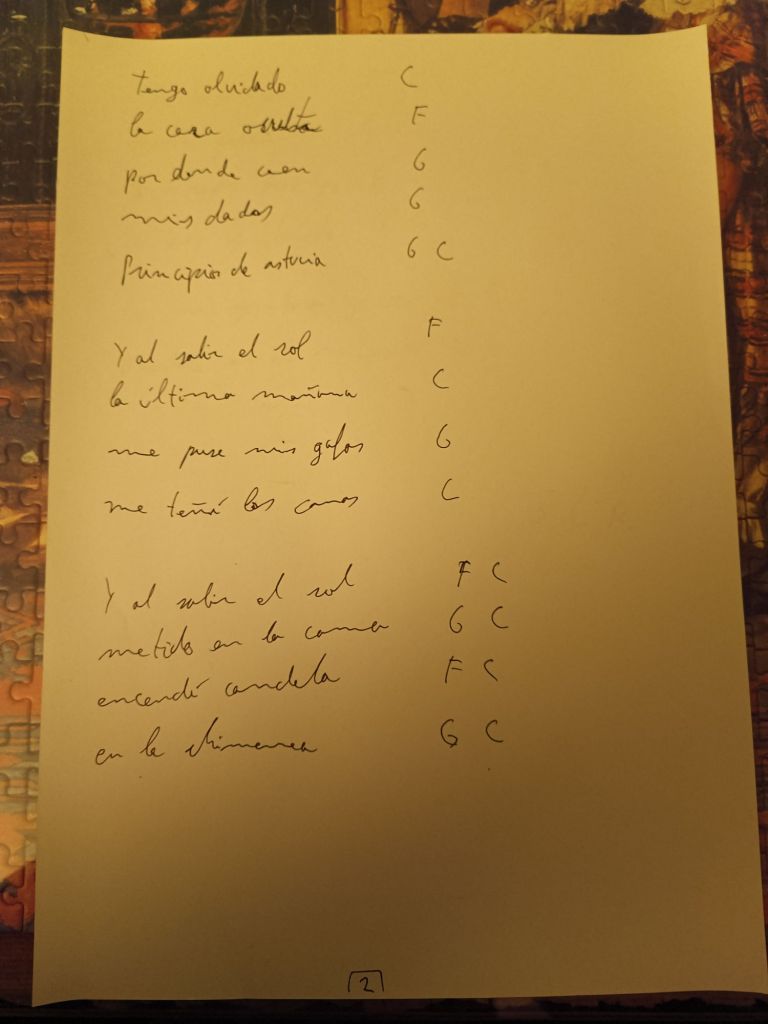 Tengo olvidado C
la cara oculta F
por donde caen G
mis dados G
Principios de astucia G C
Y al salir el sol F
la última mañana C
me puse mis gafas G
me teñí las canas C
Y al salir el sol F C
metido en la cama G C
encendí candela F C
en la chimenea G C
2